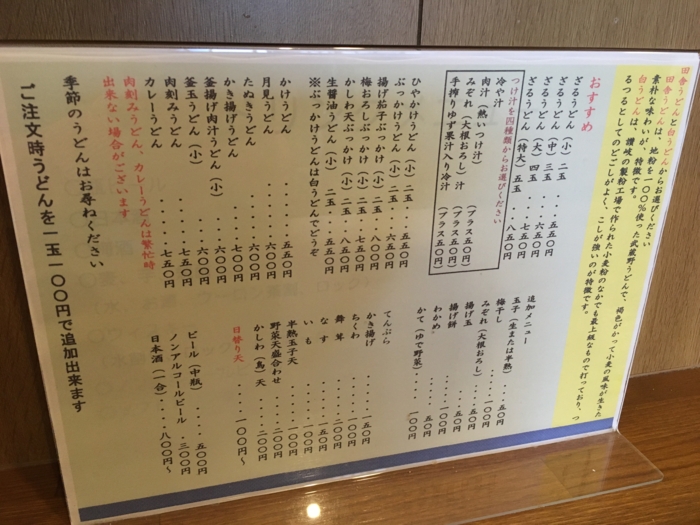 田舎うどんと白うどんからお選びください
田舎うどんは、地粉を一〇〇％使った武蔵野うどんで、褐色がかって小麦の風味が生きた
素朴な味わいが、特徴です。
白うどんは、讃岐の製粉工場で作られた小麦粉のなかでも最上級なもので打っており、つ
るつるとしてのどごしがよく、こしが強いのが特徴です。
おすすめ
ざるうどん（小）二玉
ざるうどん（中）三玉・・・五五〇円
ざるうどん（大）四玉・・・六五〇円
ざるうどん（特大）五玉・・・七五〇円
・・・八五〇円
つけ汁を四種類からお選びください
冷や汁
肉汁（熱いつけ汁）
みぞれ（大根おろし）汁（プラス五〇円）
手搾りゆず果汁入り冷汁（プラス五〇円）
（プラス五〇円）
ひやかけうどん（小）二玉・・・五五〇円
ぶっかけうどん（小）二玉・・・六五〇円
揚げ茄子ぶっかけ（小）二玉・・八〇〇円
梅おろしぶっかけ（小）二玉・・八〇〇円
かしわ天ぶっかけ（小）二玉・・八五〇円
生醤油うどん（小）二玉・・・五五〇円
※ぶっかけうどんは白うどんでどうぞ
かけうどん・・・・・・五五〇円
月見うどん・・・・・・六〇〇円
たぬきうどん・・・・・六〇〇円
かき揚げうどん・・・・七〇〇円
釜揚げ肉汁うどん（小）・・六〇〇円
釜玉うどん（小）・・・六〇〇円
肉刻みうどん・・・・・七五〇円
カレーうどん・・・・・七五〇円
肉刻みうどん、カレーうどんは繁忙時
出来ない場合がございます
季節のうどんはお尋ねください
ご注文時うどんを一玉一〇〇円で追加出来ます
追加メニュー
玉子（生または半熟）・・五〇円
梅干し・・・・・五〇円
みぞれ（大根おろし）・・一〇〇円
揚げ玉・・・・・五〇円
揚げ餅・・・・・一〇〇円
わかめ・・・・・五〇円
かて（ゆで野菜）・・・一〇〇円
てんぷら
かき揚げ・・・・一五〇円
ちくわ・・・・・一〇〇円
舞茸・・・・・二〇〇円
なす・・・・・一五〇円
いも・・・・・一〇〇円
半熟玉子天・・・・一〇〇円
野菜天盛合わせ・・・二〇〇円
かしわ（鳥）天・・・二〇〇円
日替り天・・・・一〇〇円～
ビール（中瓶）・・・・五〇〇円
ノンアルコールビール・・三〇〇円
日本酒（一合）・・・八〇〇円～